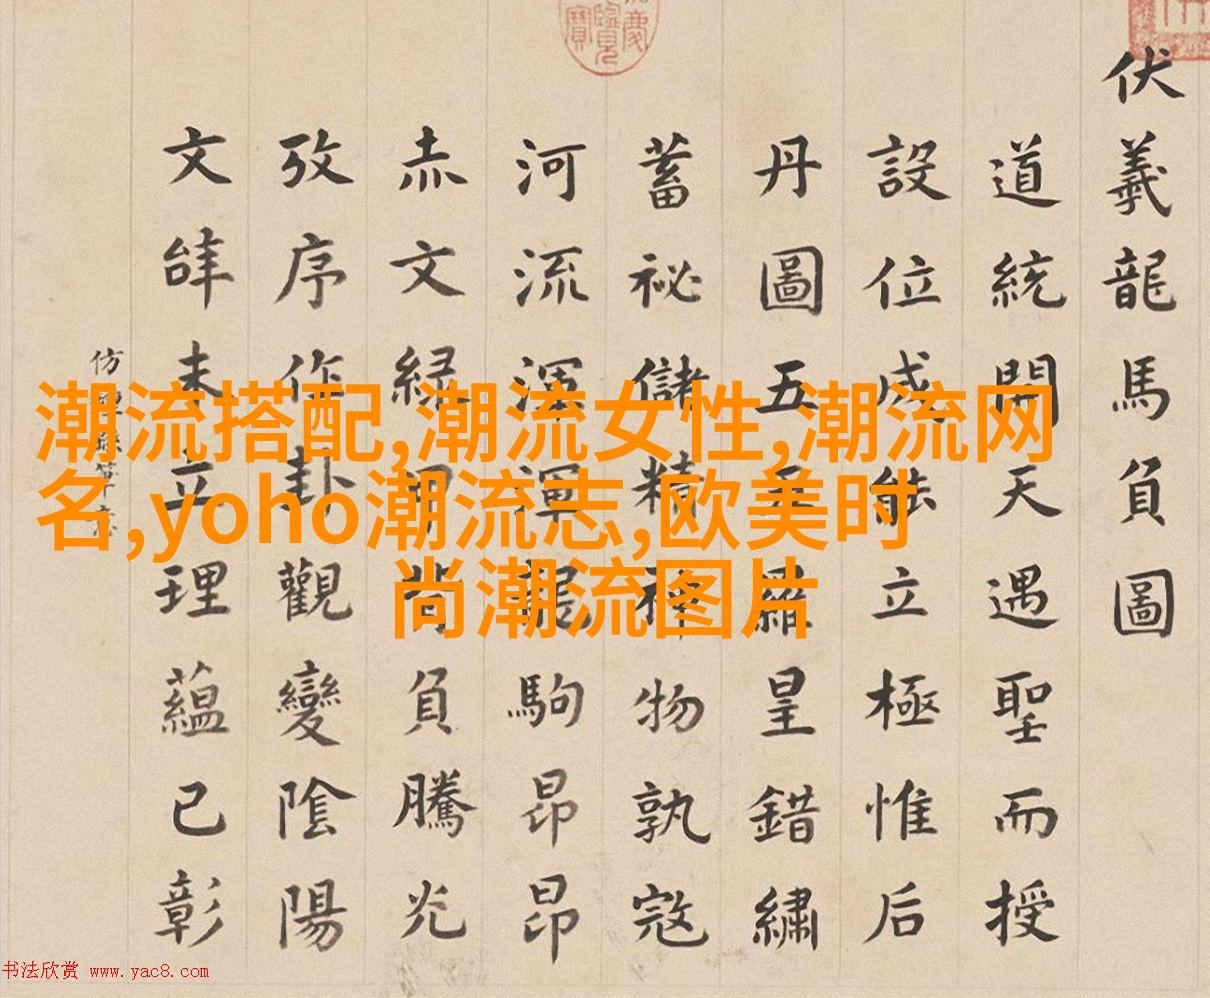 伏羲龍馬負圖
道統開天遇聖而授
設位成能立極惟后
丹圖五羅皇錯繡
蓄祕儲精神物孰寇
河流渾渾龍駒昂昂
赤文緑甲背負騰光
攷序作卦觀變陰陽
文辝未立理蘊已彰
仿
潮流搭配,潮流女性,潮流网
名,yoho潮流志,欧美时
尚潮流图片
书法欣赏 www.yac8.com